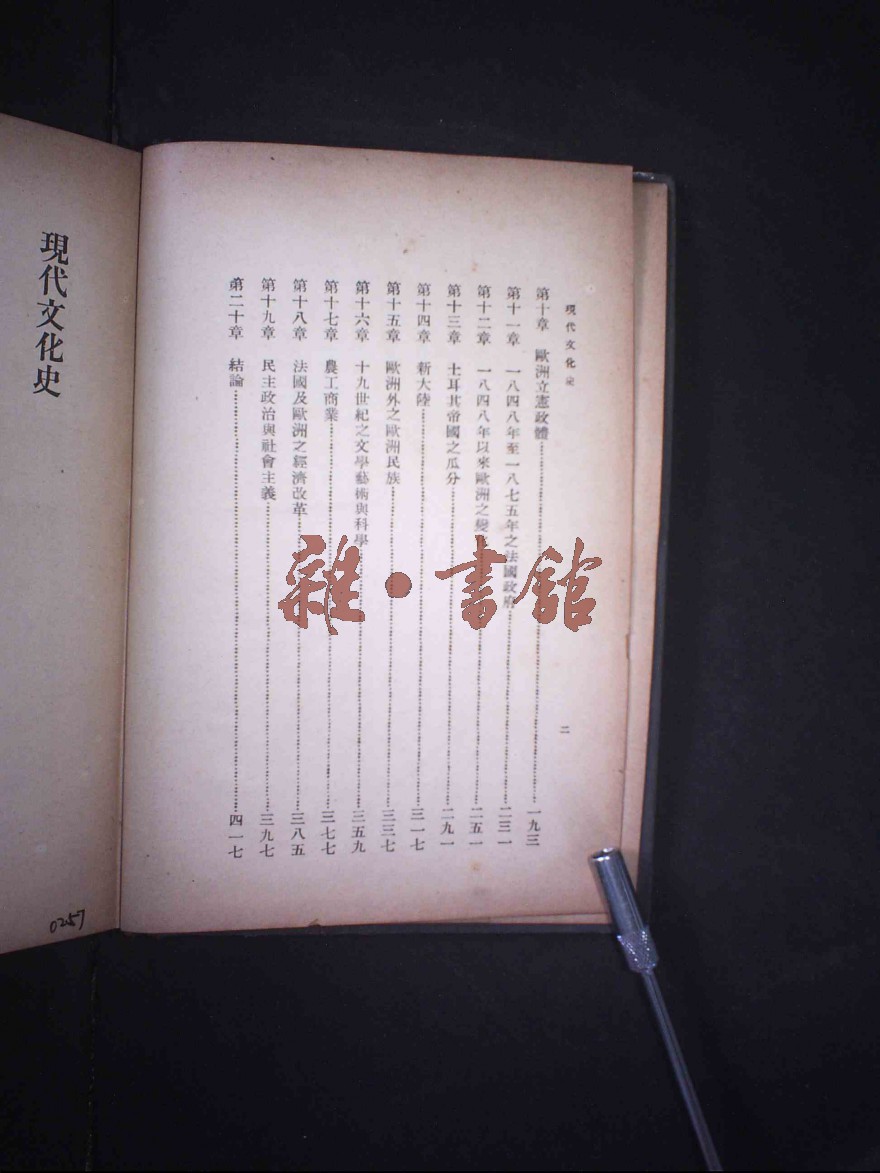 現代文化史
二
第十章 歐洲立憲政體……一九三
第十一章 一八四八年至一八七五年之法國政府……二三一
第十二章 一八四八年以來歐洲之變……二五一
第十三章 土耳其帝國之瓜分……二九一
第十四章 新大陸……三一七
第十五章 歐洲外之歐洲民族……三三七
第十六章 十九世紀之文學藝術與科學……三五九
第十七章 農工商業……三七七
第十八章 法國及歐洲之經濟改革……三八五
第十九章 民主政治與社會主義……三九七
第二十章 結論……四一七
現代文化史
0257
雜·書館